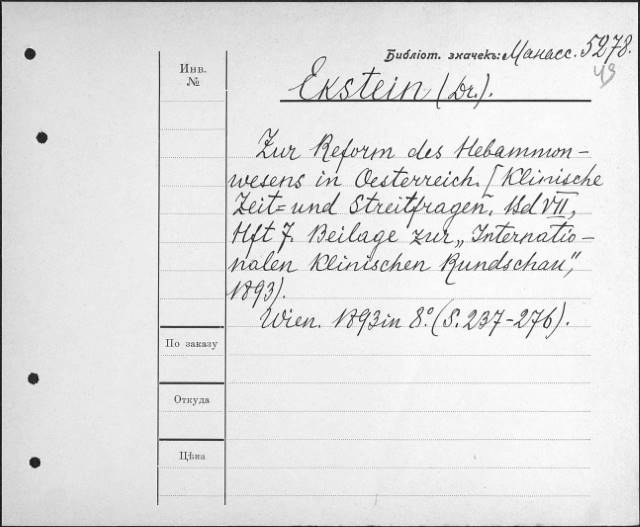 Библіот. значекъ: Манасс. 5278.
43
Инв.
№
Ekstein (Dr.).
Zur Reform des Hebammon-
wesens in Oesterreich. [Klinische
Zeit= und Streitfragen. Bd VII,
Hft 7. Beilage zur „Internatio-
nalen klinischen Rundschau",
1893).
Wien. 1893 in 8.° (S. 237-276).
По заказу
Откуда
Цѣна